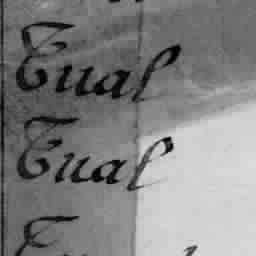 Tual
Tual